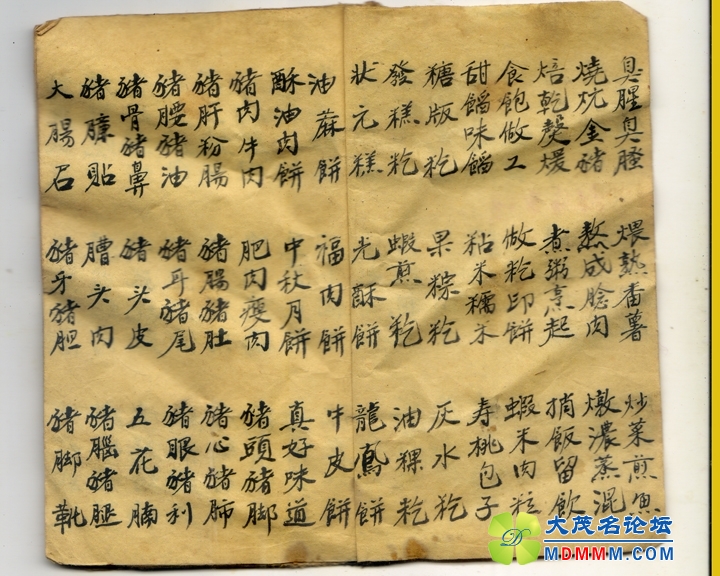 臭腥臭臊 煨熟番薯 炒菜煎魚
燒炆金豬 熬成脍肉 燉濃蒸混
焙乾煖 煮粥烹起 捎飯留飲
食飽做工 做籺印餅 蝦米肉粒
甜饀味饀 粘米糯米 寿桃包子
糖版籺 果粽籺 灰水籺
發糕籺 蝦煎籺 油粿籺
狀元糕 光酥餅 龍鳳餅
油蔴餅 福肉餅 牛皮餅
酥油肉餅 中秋月餅 真好味道
豬肉牛肉 肥肉瘦肉 豬頭豬脚
豬肝粉腸 豬腸豬肚 豬心豬肺
豬腰豬油 豬耳豬尾 豬眼豬利
豬骨豬鼻 豬头皮 五花腩
豬貼 头肉 豬腦豬腿
大腸石 豬牙豬胆 豬脚靴
大茂名论坛
MDMMM.COM